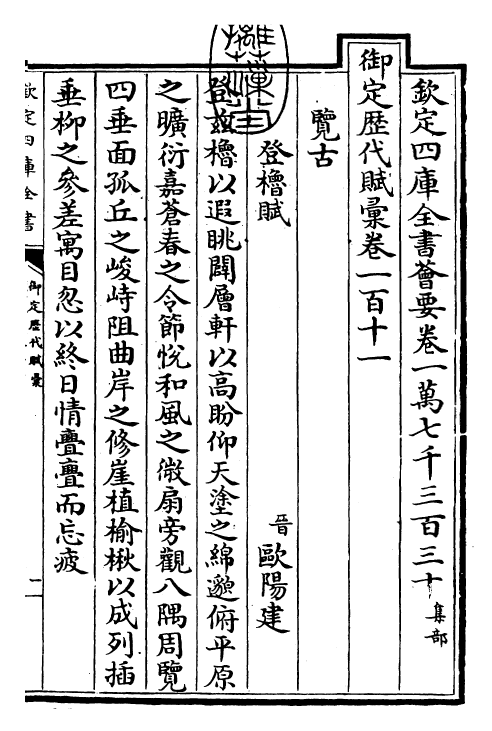 欽定四庫全書薈要卷一萬七千三百三十集部
御定歴代賦彙卷一百十一
覽古
登櫓賦 晉歐陽建
登茲櫓以遐眺闢層軒以高盼仰天塗之綿邈俯平原
之曠衍嘉蒼春之令節悅和風之微扇旁觀八隅周覽
四垂面孤丘之峻峙阻曲岸之修崖植榆楸以成列插
垂柳之參差寓目忽以終日情亹亹而忘疲
欽定四庫全書
御定歴代賦彙